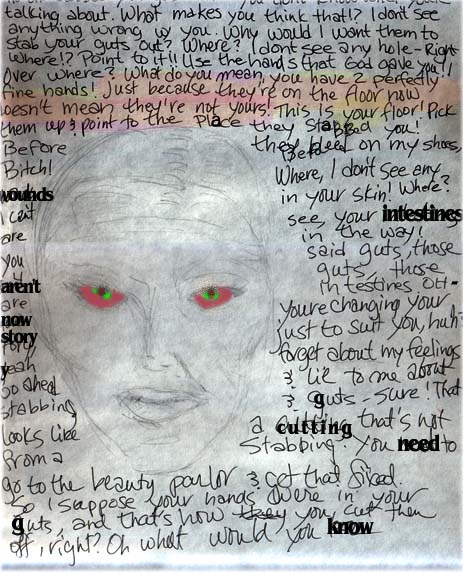 talking about. What makes you think that!? I don't see
anything wrong w you. Why would I want them to
stab your guts out? Where? I dont see any hole - Right
Where!? Point to it!! Use the hands that God gave you!!
Over where? What do you mean, you have 2 perfectly
fine hands! Just because they're on the floor now
doesn't mean they're not yours! This is your floor! Pick
them up & point to the place they stabbed you!
Before they bleed on my shoes,
Bitch! Where, I don't see any
wounds in your skin! Where?
I cant see your intestines
are in the way!
you said guts, those
guts, those
arent intestines. Oh-
are youre changing your
now story just to suit you, huh?
forget about my feelings
yeah & lie to me about
go ahead & guts - sure! That
stabbing a cutting that's not
looks like Stabbing. You need to
from a
go to the beauty parlor & get that fixed.
So I suppose your hands were in your
guts, and that's how they you cut them
off, right? Oh what would you know